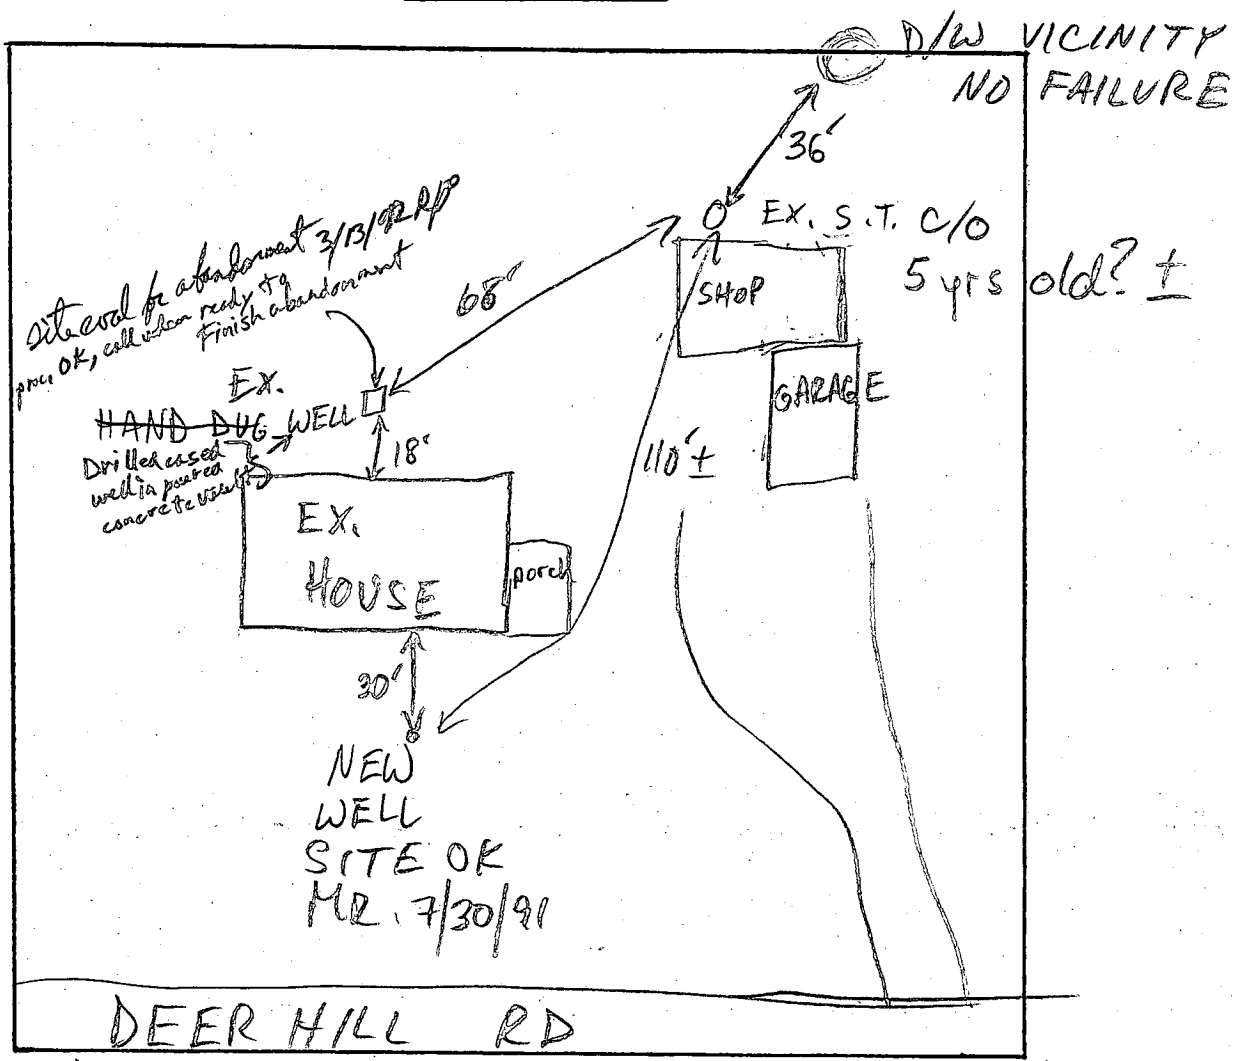 D/W VICINITY
NO FAILURE
36'
EX. S.T. C/O
5 yrs old? ±
SHOP
GARAGE
for abandonment 3/13/92
OK, call when ready to
Finish abandonment
68'
EX.
HAND DUG WELL
Drilled cased
well in poured
concrete
18'
110' ±
EX.
HOUSE
porch
30'
NEW
WELL
SITE OK
MR. 7/30/91
DEER HILL RD